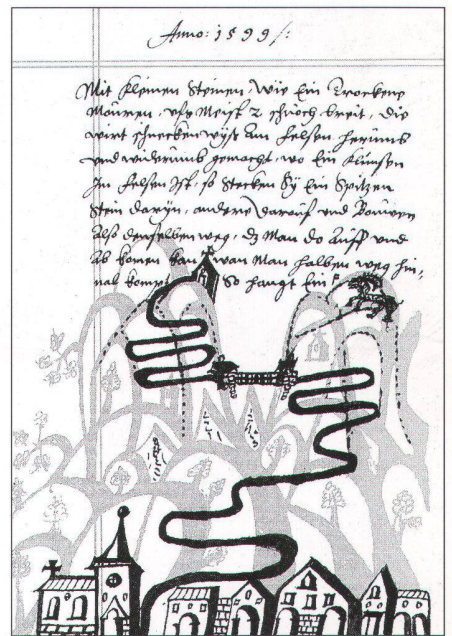 Anno: 1599 /:
Mit kleinen Steinen, wie Ein Trockene
Mauren, uff Meist 2 schuoch breit, die
wirt schnecken wyß am felsen herumb
und widerumb gemacht, wo Ein klunsen
In felsen Ist, so stecken Sy Ein Spitzen
Stein daryn, andere darauf und Bouwen
Also denselben weg, dz Man do auff und
Ab komen kan, wan Man halben weg hin,
nal kompt So hangt Ein